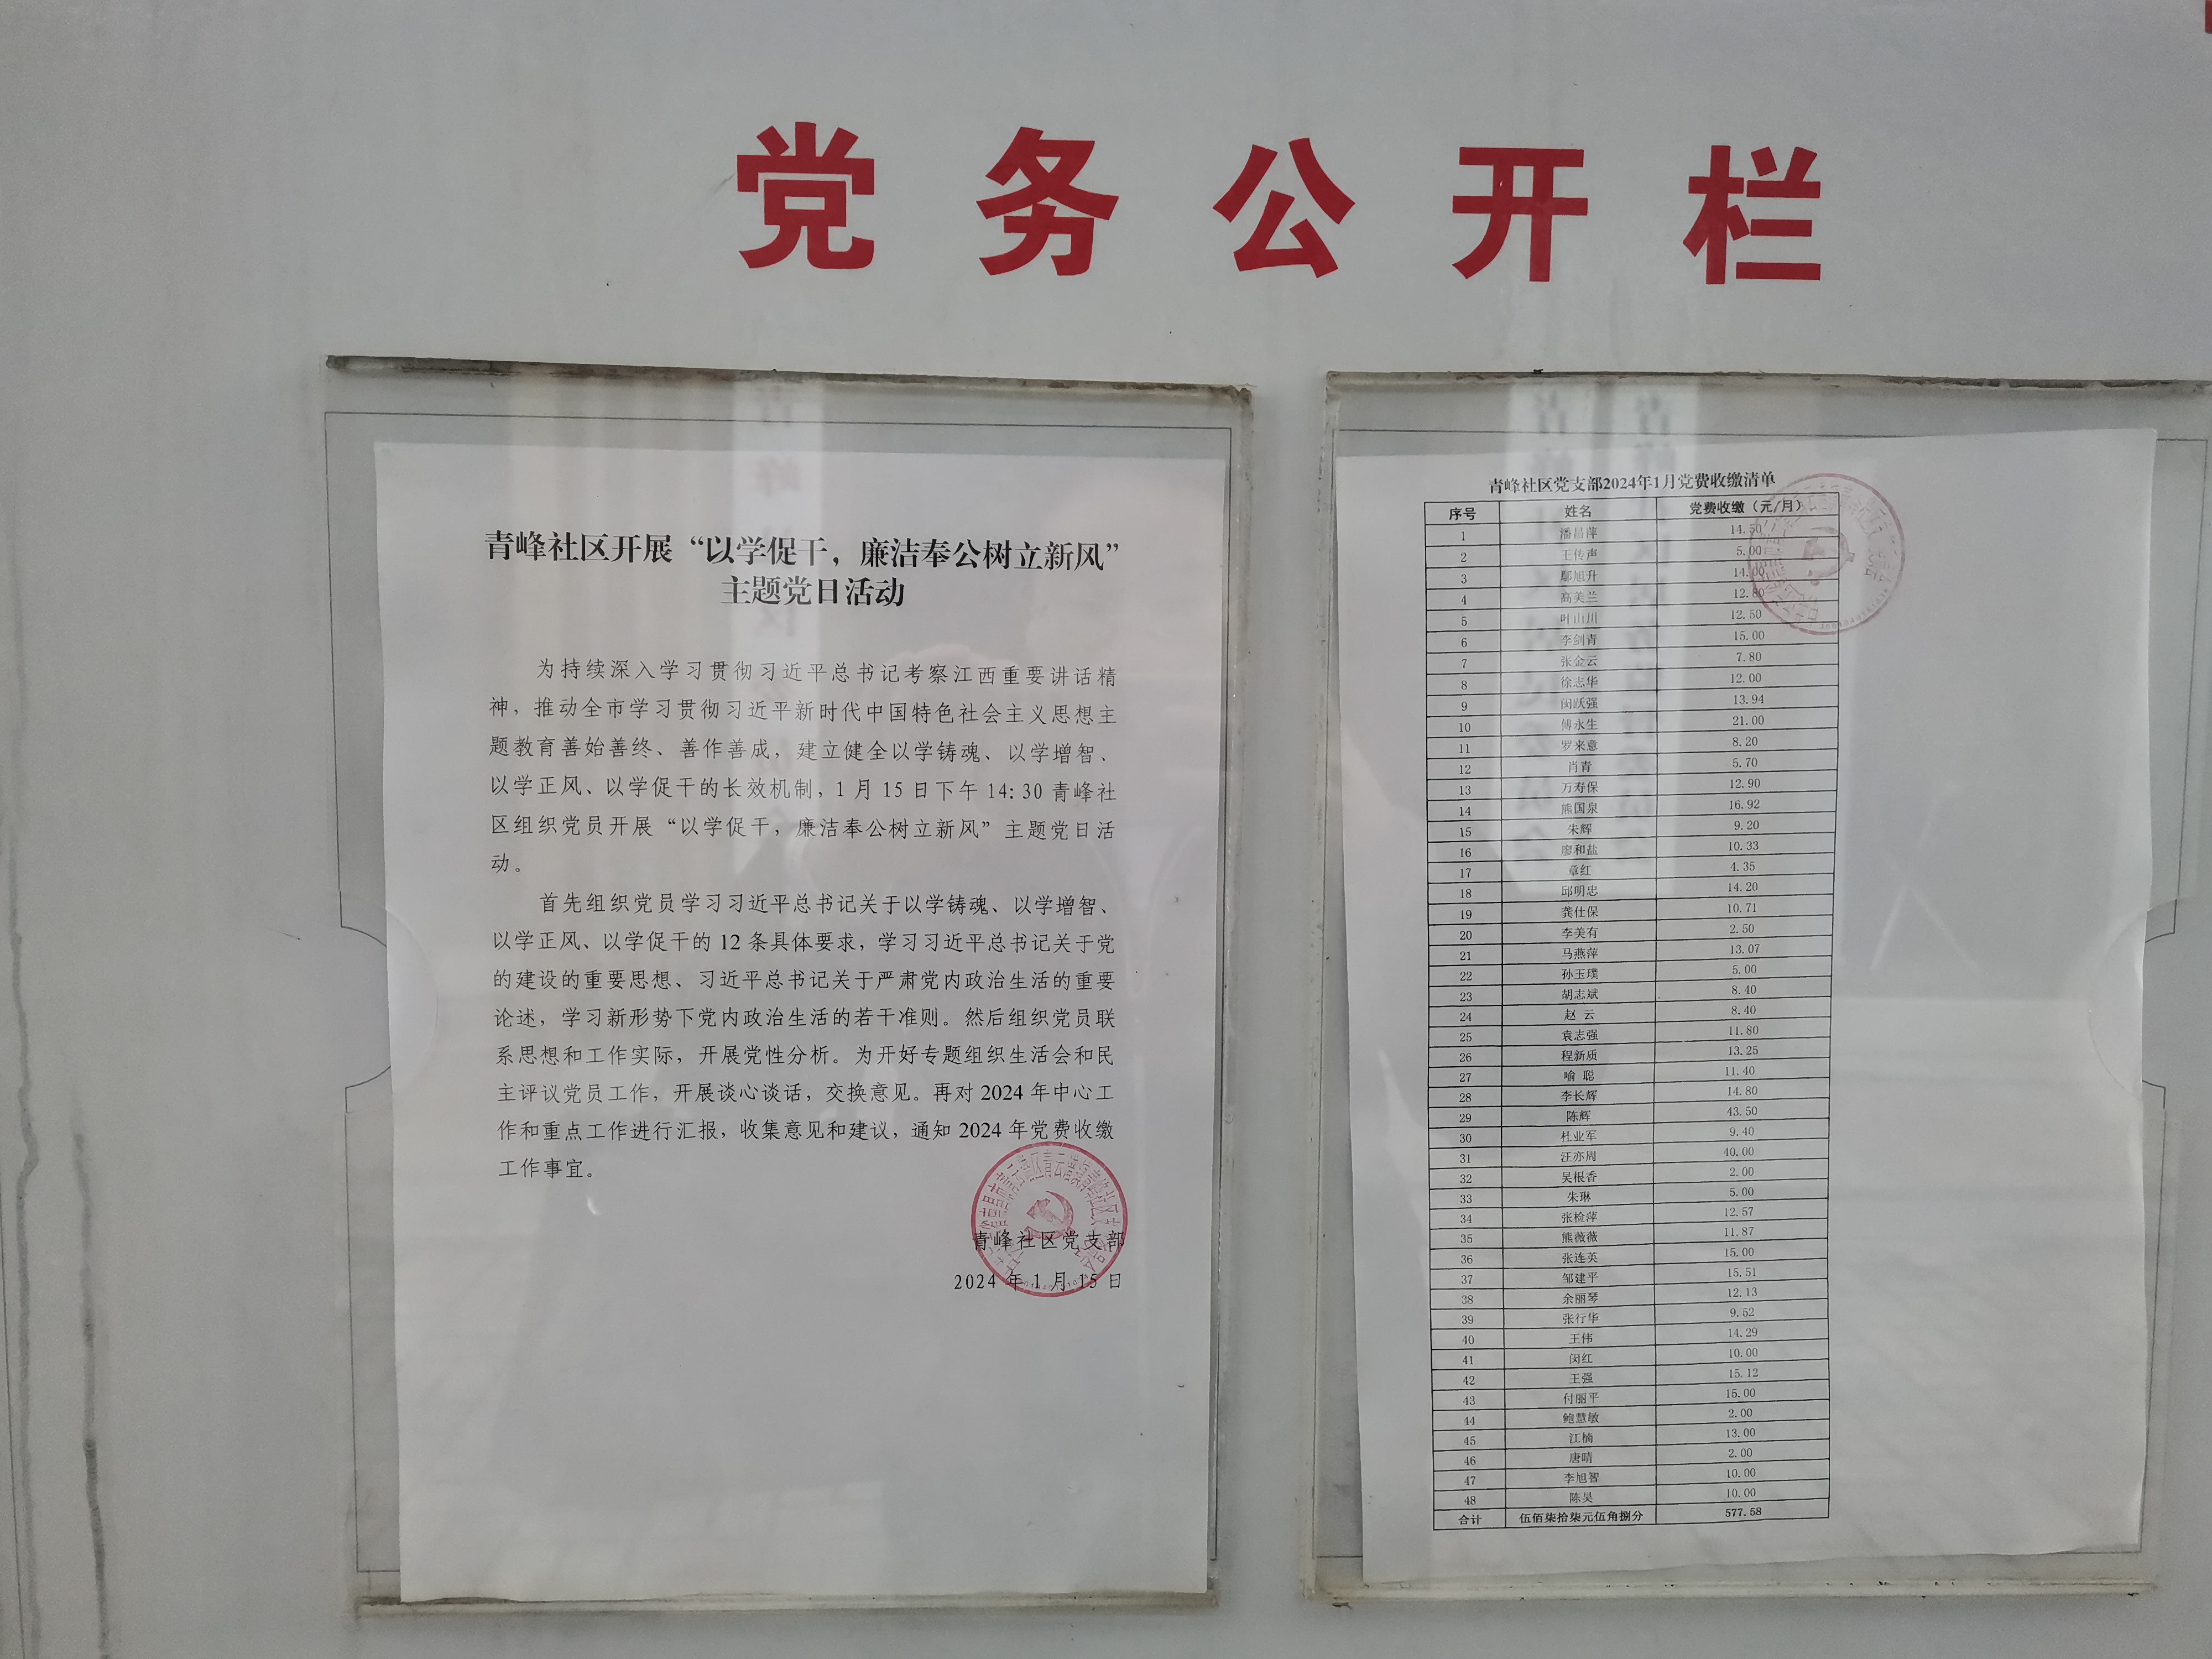 党务公开栏
青峰社区开展“以学促干，廉洁奉公树立新风”
主题党日活动
为持续深入学习贯彻习近平总书记考察江西重要讲话精
神，推动全市学习贯彻习近平新时代中国特色社会主义思想主
题教育善始善终、善作善成，建立健全以学铸魂、以学增智、
以学正风、以学促干的长效机制，1月15日下午14:30青峰社
区组织党员开展“以学促干，廉洁奉公树立新风”主题党日活
动。
首先组织党员学习习近平总书记关于以学铸魂、以学增智、
以学正风、以学促干的12条具体要求，学习习近平总书记关于党
的建设的重要思想、习近平总书记关于严肃党内政治生活的重要
论述，学习新形势下党内政治生活的若干准则。然后组织党员联
系思想和工作实际，开展党性分析。为开好专题组织生活会和民
主评议党员工作，开展谈心谈话，交换意见。再对2024年中心工
作和重点工作进行汇报，收集意见和建议，通知2024年党费收缴
工作事宜。
青峰社区党支部
2024年1月15日
青峰社区党支部2024年1月党费收缴清单
序号 姓名 党费收缴（元/月）
1 潘昌萍 14.50
2 王传声 5.00
3 鄢旭升 14.00
4 高美兰 12.80
5 叶山川 12.50
6 李剑青 15.00
7 张金云 7.80
8 徐志华 12.00
9 闵跃强 13.94
10 傅永生 21.00
11 罗来意 8.20
12 肖青 5.70
13 万寿保 12.90
14 熊国泉 16.92
15 朱辉 9.20
16 廖和盐 10.33
17 章红 4.35
18 邱明忠 14.20
19 龚仕保 10.71
20 李美有 2.50
21 马燕萍 13.07
22 孙玉璞 5.00
23 胡志斌 8.40
24 赵 云 8.40
25 袁志强 11.80
26 程新质 13.25
27 喻 聪 11.40
28 李长辉 14.80
29 陈辉 43.50
30 杜业军 9.40
31 汪亦周 40.00
32 吴根香 2.00
33 朱琳 5.00
34 张检萍 12.57
35 熊薇薇 11.87
36 张连英 15.00
37 邹建平 15.51
38 余丽琴 12.13
39 张行华 9.52
40 王伟 14.29
41 闵红 10.00
42 王强 15.12
43 付丽平 15.00
44 鲍慧敏 2.00
45 江楠 13.00
46 唐晴 2.00
47 李旭智 10.00
48 陈昊 10.00
合计 伍佰柒拾柒元伍角捌分 577.58